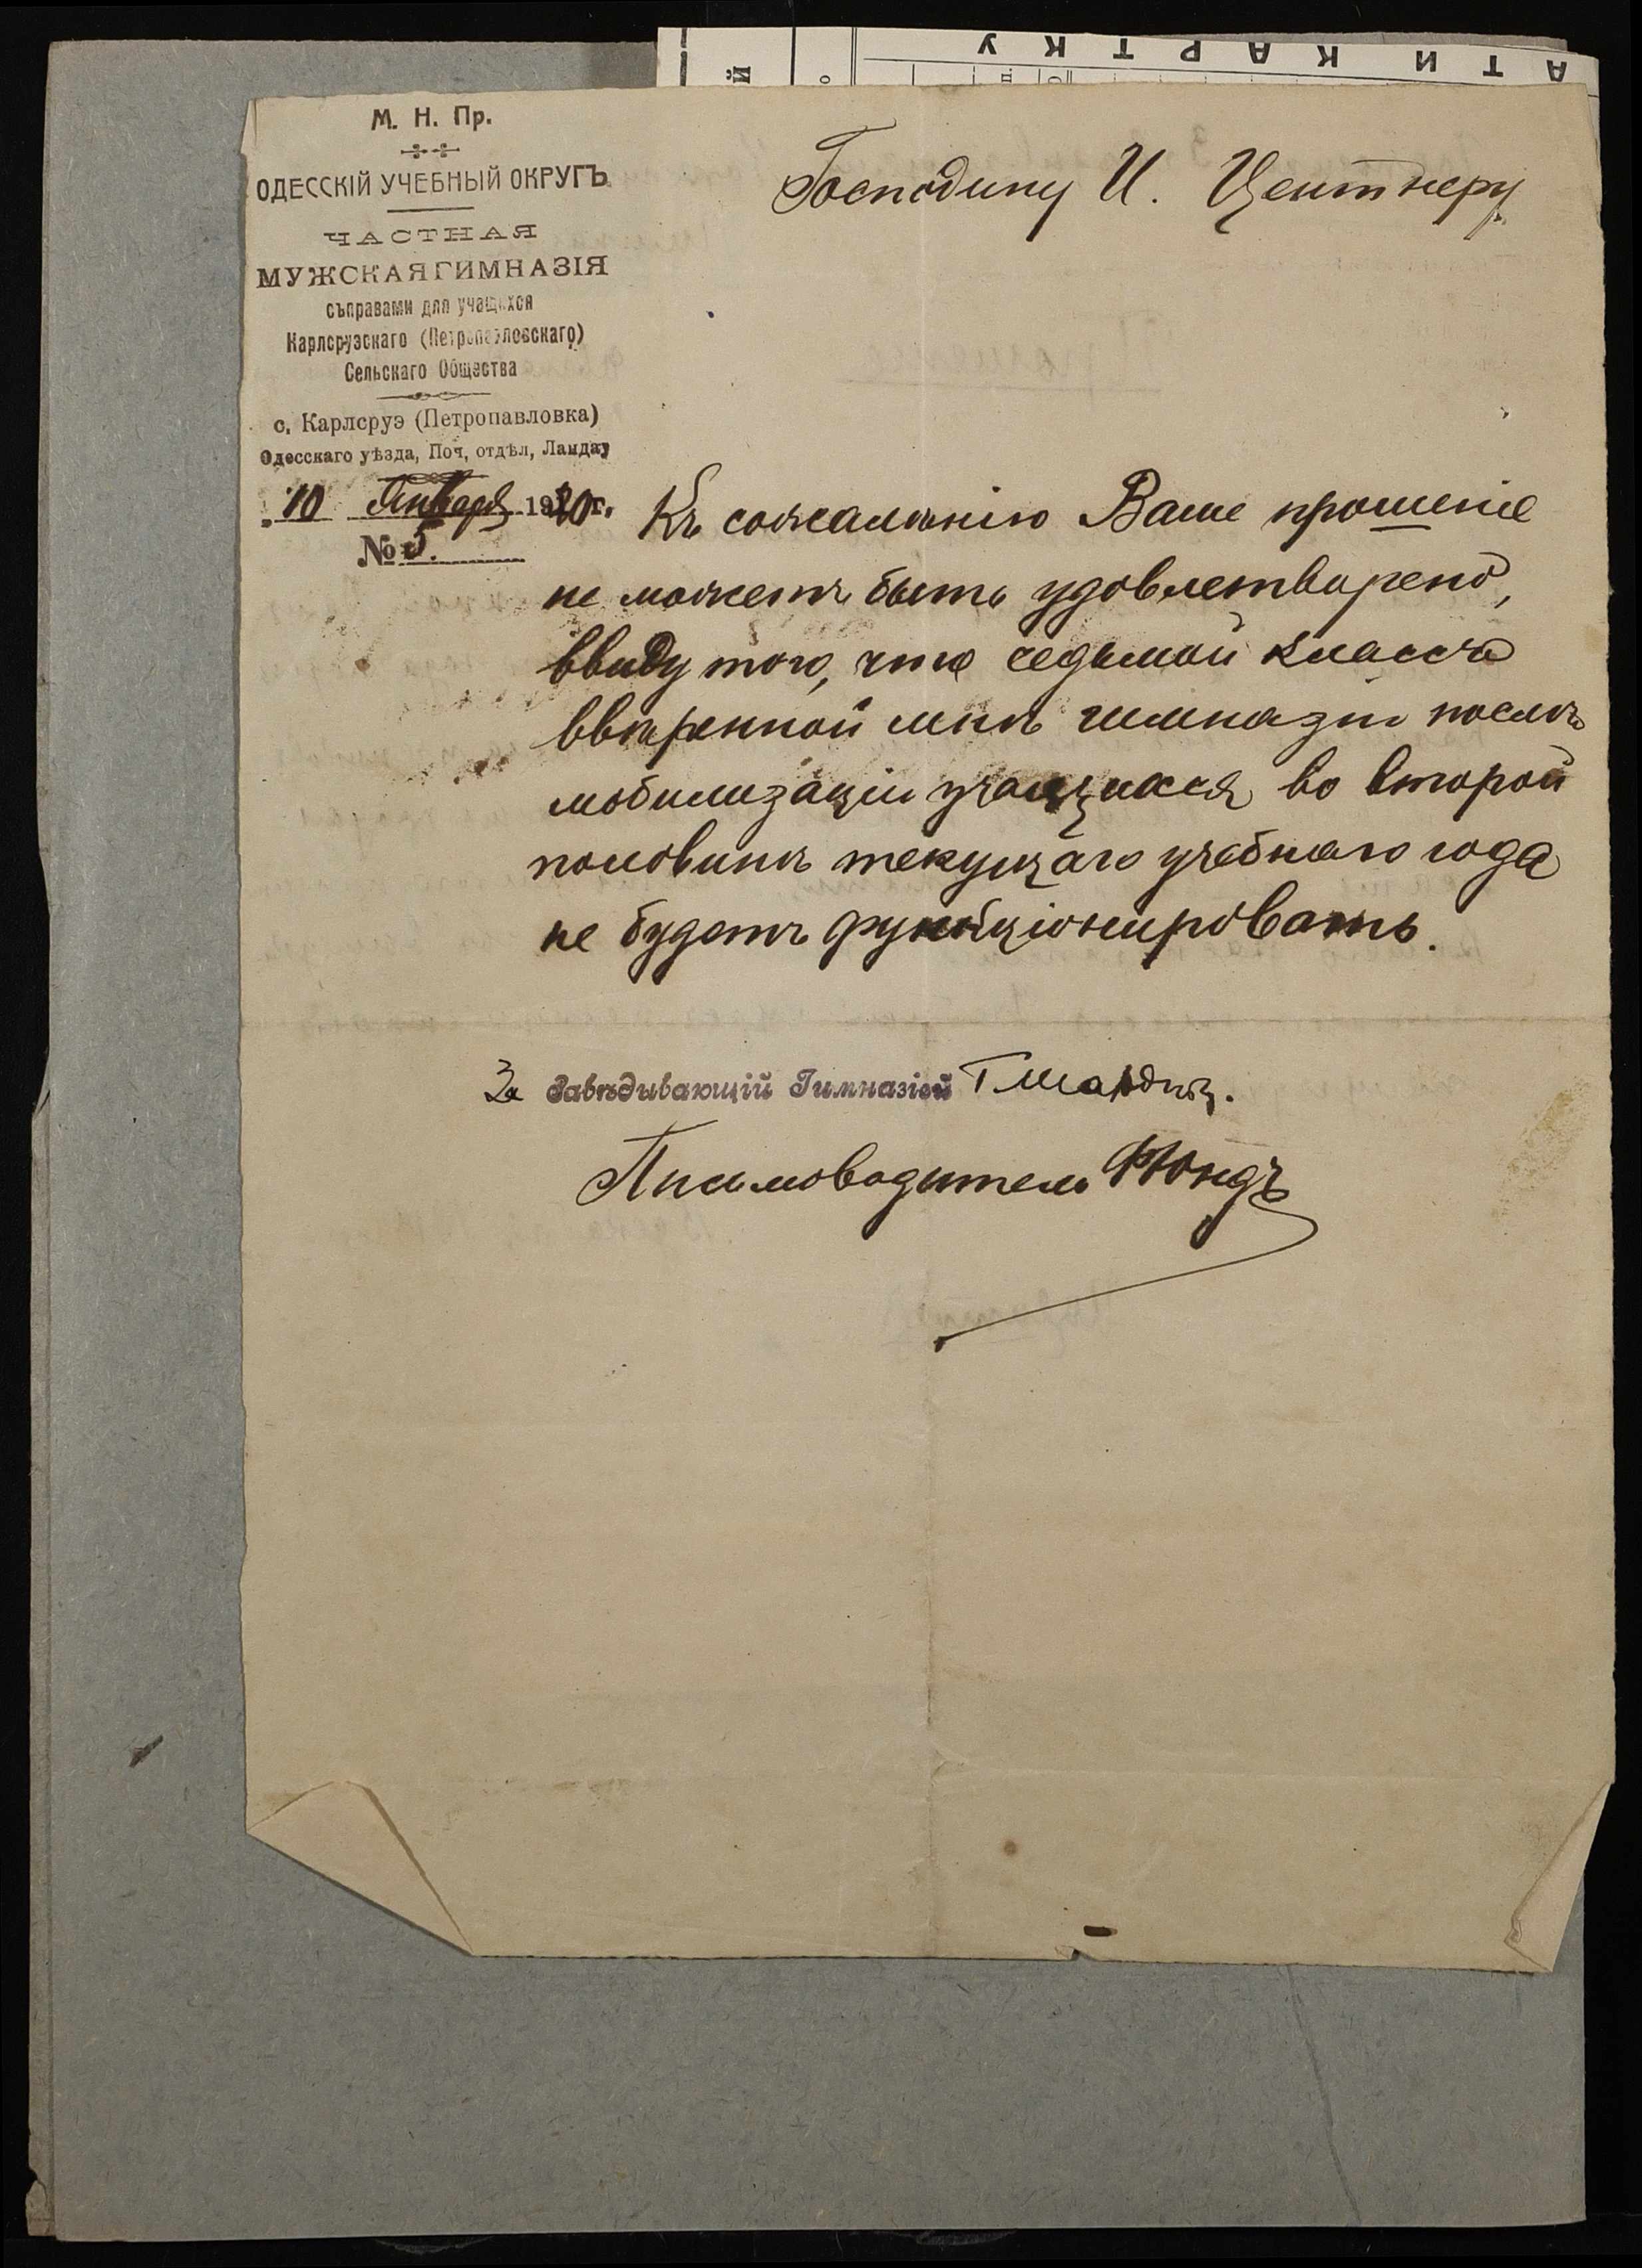 АТИ КАРТКУ
М. Н. Пр.
ОДЕССКІЙ УЧЕБНЫЙ ОКРУГЪ
ЧАСТНАЯ
МУЖСКАЯ ГИМНАЗІЯ
съ правами для учащихся
Карлсрузскаго (Петропавловскаго)
Сельскаго Общества
с. Карлсруэ (Петропавловка)
Одесскаго уѣзда, Поч. отдѣл. Ландау
10 Января 1920 г.
№ 5.
Господину И. Центнеру
Къ сожалѣнію Ваше прошеніе
не можетъ быть удовлетворено,
ввиду того, что седьмой классъ
ввѣренной мнѣ гимназіи послѣ
мобилизаціи учащихся во второй
половинѣ текущаго учебнаго года
не будетъ функціонировать.
За Завѣдывающій Гимназіей
Письмоводитель